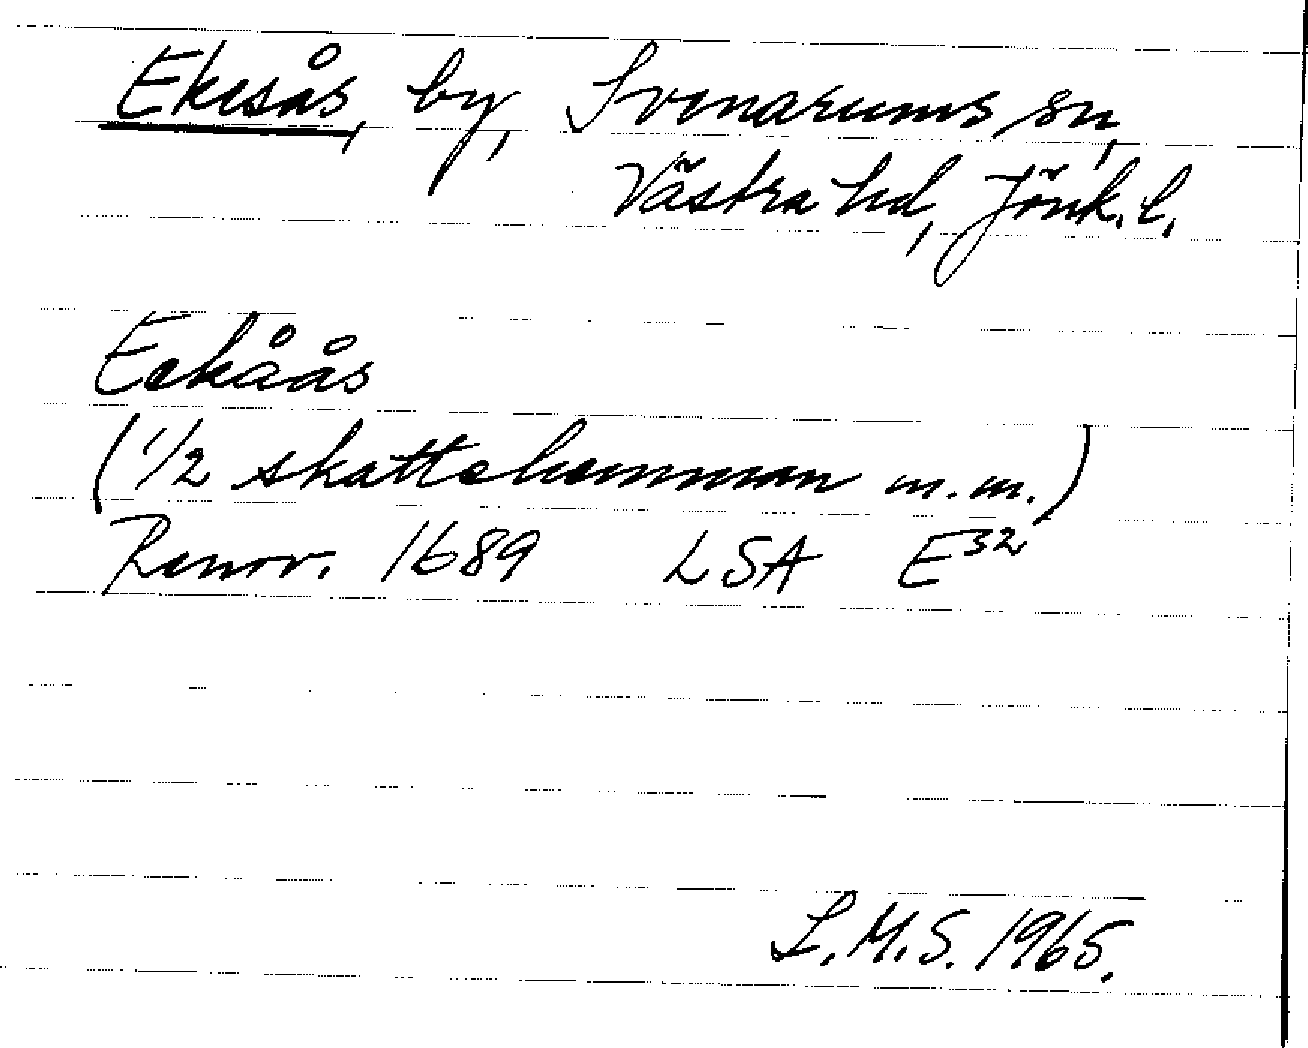 Ekesås, by, Svenarums sn,
Västra hd, Jönk. l.
Eekåås
(1/2 skattehemman m.m.)
Renov. 1689 LSA E³²
L.M.S. 1965.